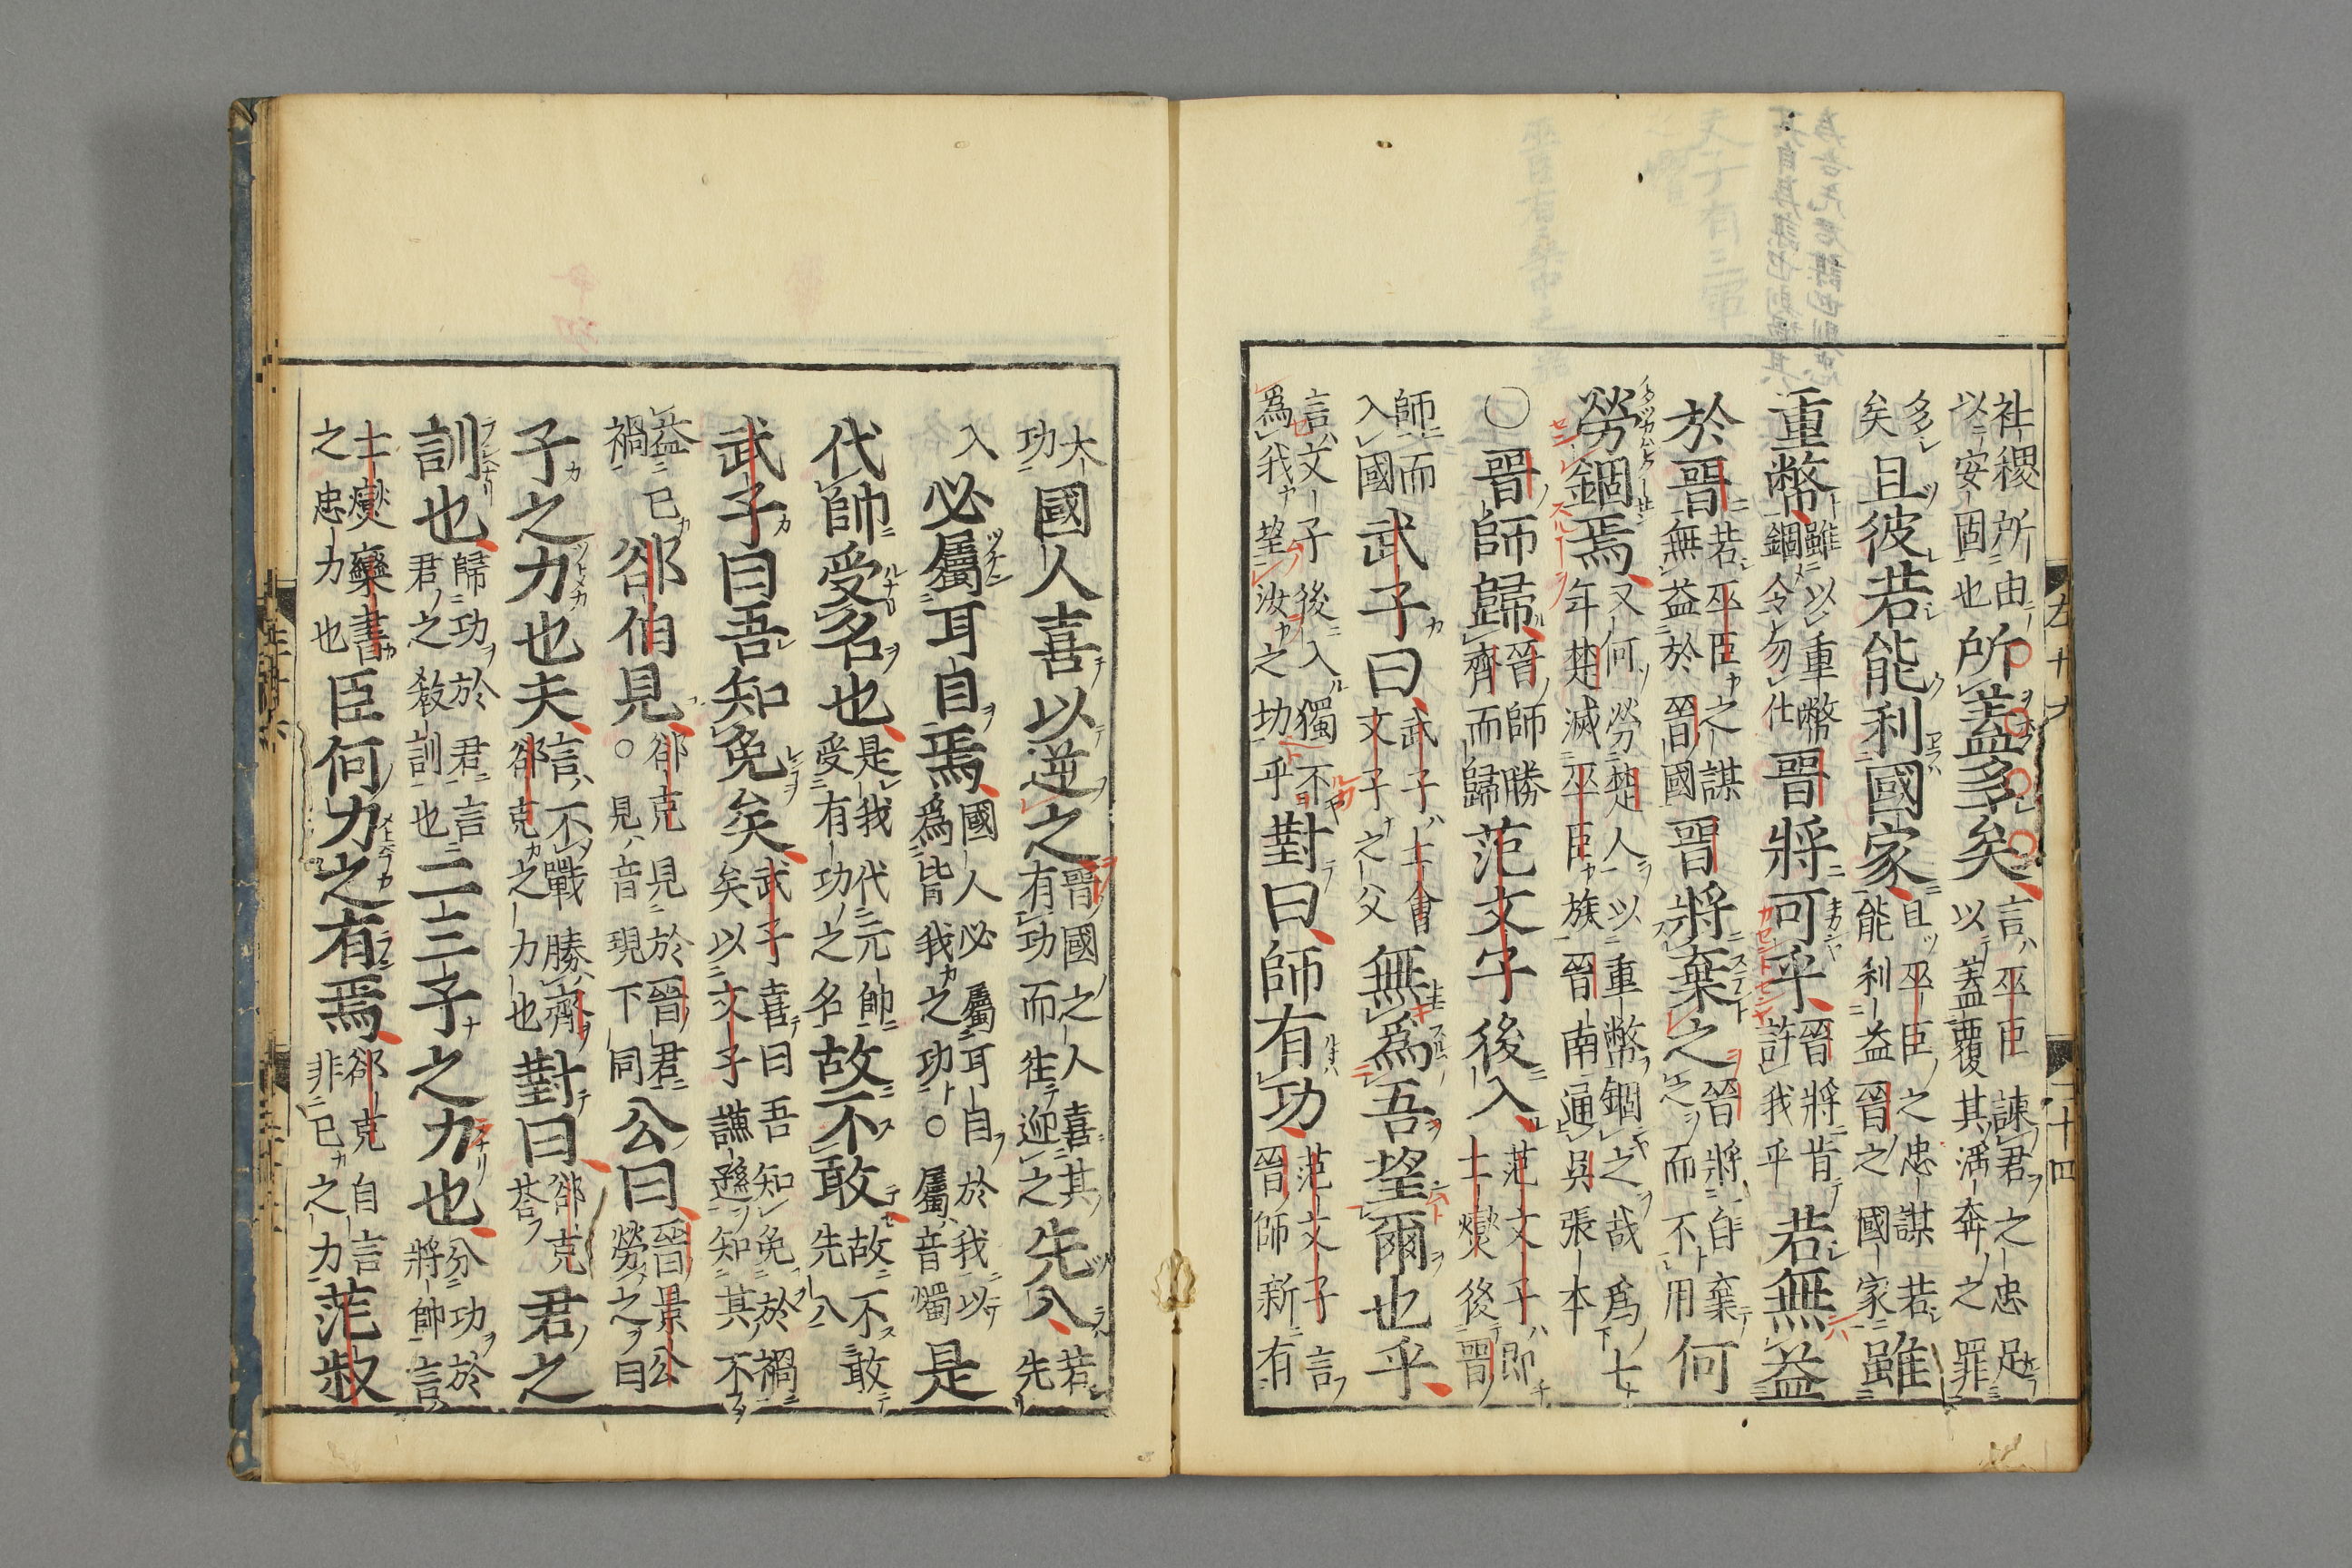 社稷所由以安固也所蓋多矣言巫臣諫君之忠足以蓋覆其淫奔之罪
多矣且彼若能利國家且巫臣之忠謀若能利益晉之國家雖
重幣雖以重幣錮令勿仕晉將可乎晉將肯許我乎若無益
於晉若巫臣之謀無益於晉國晉將棄之晉將自棄之而不用何
勞錮焉又何勞楚人以重幣錮之哉為七年楚滅巫臣族晉南通吳張本
○晉師歸晉師勝齊而歸范文子後入范文子即士燮後晉
師而入國武子曰武子士會文子之父無爲吾望爾也乎
言文子後入獨不為我望汝之功乎對曰師有功范文子言晉師新有
大功國人喜以逆之晉國之人喜其有功而往迎之先入若先
入必屬耳目焉國人必屬耳目於我以為皆我之功○屬音獨是
代帥受名也是我代元帥受有功之名故不敢故不敢先入
武子曰吾知免矣武子喜曰吾知免於禍矣以文子謙遜知其不
益己禍郤伯見郤克見於晉君○見音現下同公曰晉景公勞之曰
子之力也夫言不戰勝齊郤克之力也對曰郤克荅君之
訓也歸功於君言君之教訓也二三子之力也分功於將帥言
士燮欒書之忠力也臣何力之有焉郤克自言非己之力范叔
左十六
二十四